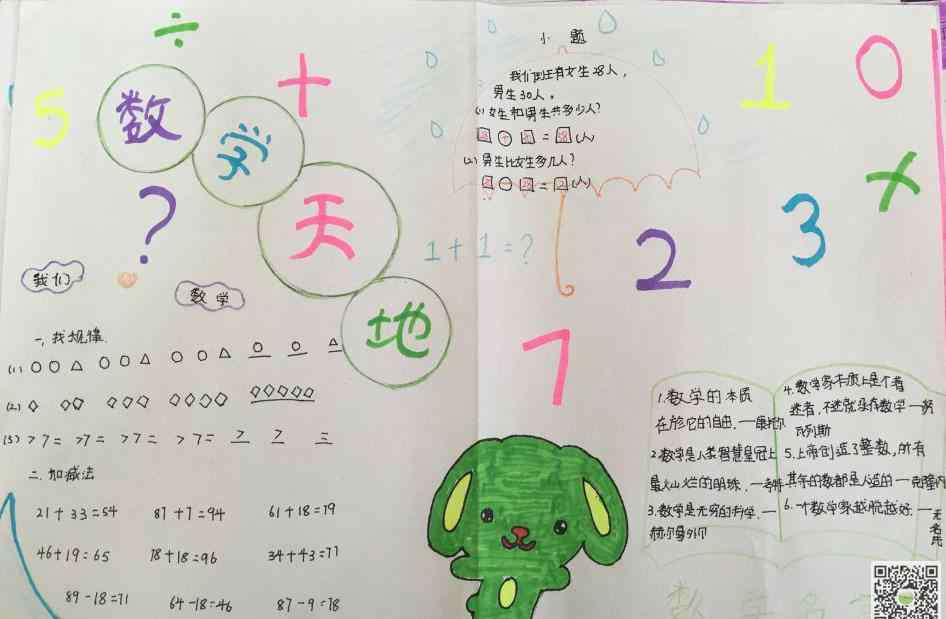 ÷
+
5
数学天地
?
1 0
×
3
2
1+1=?
7
小题
我们班有女生28人，
男生30人。
(1)女生和男生共多少人？
+ = 58 (人)
(2)男生比女生多几人？
= 2 (人)
我们
数学
一、找规律
(1) ○○△ ○○△ ○○△ ○ ○ △
(2) ◇ ◇◇ ◇◇◇ ◇◇◇◇ ◇◇◇◇◇
(3) >7= >7= >7= >7=
二、加减法
21+33=54 87+7=94 61+18=79
46+19=65 78+18=96 34+43=77
89-18=71 64-18=46 87-9=78
1.数学的本质
在於它的自由.一康托尔
2.数学是人类智慧皇冠上
最灿烂的明珠.一考特
3.数学是无穷的科学.一
赫尔曼外尔
4.数学家本质上是个着
迷者,不迷就没有数学一努
瓦列斯
5.上帝创造了整数,所有
其余的数都是人造的一克隆内
6.一个数学家越脱越好一
无名氏
数学名言